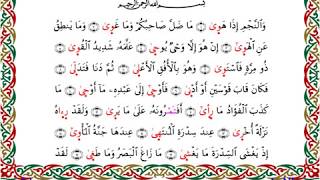 بِسْمِ اللَّهِ الرَّحْمَٰنِ الرَّحِيمِ
وَالنَّجْمِ إِذَا هَوَىٰ ۝ مَا ضَلَّ صَاحِبُكُمْ وَمَا غَوَىٰ ۝ وَمَا يَنطِقُ
عَنِ الْهَوَىٰ ۝ إِنْ هُوَ إِلَّا وَحْيٌ يُوحَىٰ ۝ عَلَّمَهُ شَدِيدُ الْقُوَىٰ ۝
ذُو مِرَّةٍ فَاسْتَوَىٰ ۝ وَهُوَ بِالْأُفُقِ الْأَعْلَىٰ ۝ ثُمَّ دَنَا فَتَدَلَّىٰ ۝
فَكَانَ قَابَ قَوْسَيْنِ أَوْ أَدْنَىٰ ۝ فَأَوْحَىٰ إِلَىٰ عَبْدِهِ مَا أَوْحَىٰ ۝ مَا
كَذَبَ الْفُؤَادُ مَا رَأَىٰ ۝ أَفَتُمَارُونَهُ عَلَىٰ مَا يَرَىٰ ۝ وَلَقَدْ رَءَاهُ
نَزْلَةً أُخْرَىٰ ۝ عِندَ سِدْرَةِ الْمُنتَهَىٰ ۝ عِندَهَا جَنَّةُ الْمَأْوَىٰ ۝
إِذْ يَغْشَى السِّدْرَةَ مَا يَغْشَىٰ ۝ مَا زَاغَ الْبَصَرُ وَمَا طَغَىٰ ۝ لَقَدْ